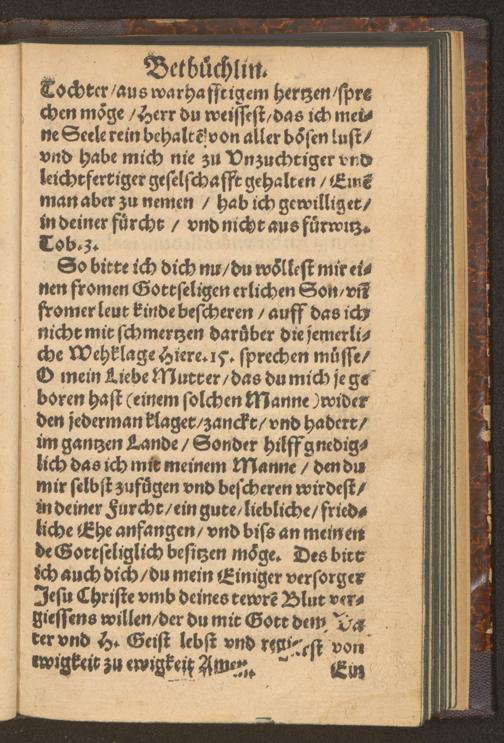 Betbüchlin.
Tochter/aus warhafftigem hertzen/spre
chen möge/Herr du weissest/das ich mei⸗
ne Seele rein behaltē von aller bösen lust/
vnd habe mich nie zu Vnzuchtiger vnd
leichtfertiger geselschafft gehalten/Einē
man aber zu nemen / hab ich gewilliget/
in deiner fürcht / vnd nicht aus fürwitz.
Tob.3.
So bitte ich dich nu/du wöllest mir ei⸗
nen fromen Gottseligen erlichen Son/vñ
fromer leut kinde bescheren / auff das ich
nicht mit schmertzen darüber die jemerli⸗
che Wehklage Hiere.15. sprechen müsse/
O mein Liebe Mutter/das du mich je ge
boren hast (einem solchen Manne) wider
den jederman klaget/zanckt/vnd hadert/
im gantzen Lande/Sonder hilff gnedig⸗
lich das ich mit meinem Manne / den du
mir selbst zufügen vnd bescheren wirdest/
in deiner Furcht/ein gute/liebliche/fried⸗
liche Ehe anfangen/vnd biss an mein en
de Gottseliglich besitzen möge. Des bitt
ich auch dich/du mein Einiger versorger
Jesu Christe vmb deines tewrē Blut ver⸗
giessens willen/der du mit Gott dem Va
ter vnd H. Geist lebst vnd regirest von
ewigkeit zu ewigkeit Amen.
Ein